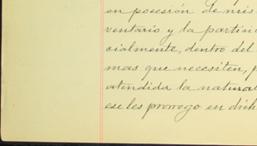 en posesión de mis
ventario y la partici
cialmente, dentro del
mas que necesiten, p
atendida la natural
ese les prorrogo en dich